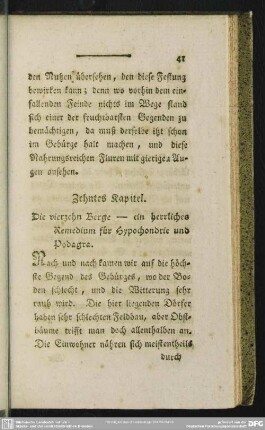 41
den Nutzen übersehen, den diese Festung
bewirken kann; denn wo vorhin dem ein-
fallenden Feinde nichts im Wege stand
sich einer der fruchtbarsten Gegenden zu
bemächtigen, da muß derselbe itzt schon
im Gebürge halt machen, und diese
Nahrungsreichen Fluren mit gierigen Au-
gen ansehen.
Zehntes Kapitel.
Die vierzehn Berge — ein herrliches
Remedium für Hypochondrie und
Podagra.
Nach und nach kamen wir auf die höch-
ste Gegend des Gebürges, wo der Bo-
den schlecht, und die Witterung sehr
rauh wird. Die hier liegenden Dörfer
haben sehr schlechten Feldbau, aber Obst-
bäume trifft man doch allenthalben an.
Die Einwohner nähren sich meistentheils
durch
DFG